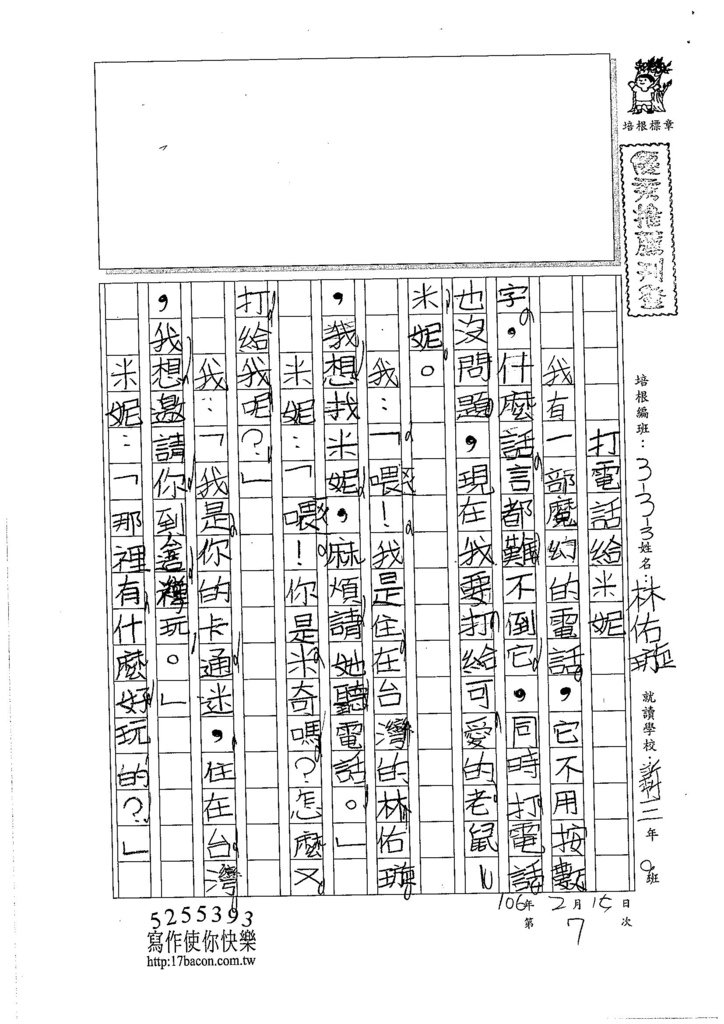 培根標章
優秀推薦刊登
培根編班：3-3-3 姓名：林佑璇 就讀學校： 三年 班
106年2月15日
第7次
打電話給米妮
我有一部魔幻的電話，它不用按數
字，什麼話言都難不倒它，同時打電話
也沒問題，現在我要打給可愛的老鼠
米妮。
我：「喂！我是住在台灣的林佑璇
，我想找米妮，麻煩請她聽電話。」
米妮：「喂！你是米奇嗎？怎麼又
打給我呢？」
我：「我是你的卡通迷，住在台灣
，我想邀請你到玩。」
米妮：「那裡有什麼好玩的？」
5255393
寫作使你快樂
http:17bacon.com.tw